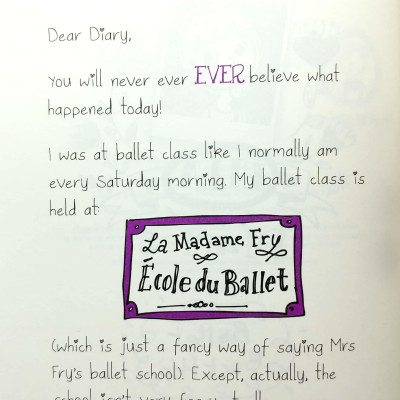 Dear Diary,
You will never ever EVER believe what
happened today!
I was at ballet class like I normally am
every Saturday morning. My ballet class is
held at:
La Madame Fry
École du Ballet
(which is just a fancy way of saying Mrs
Fry's ballet school). Except, actually, the
school isn't very